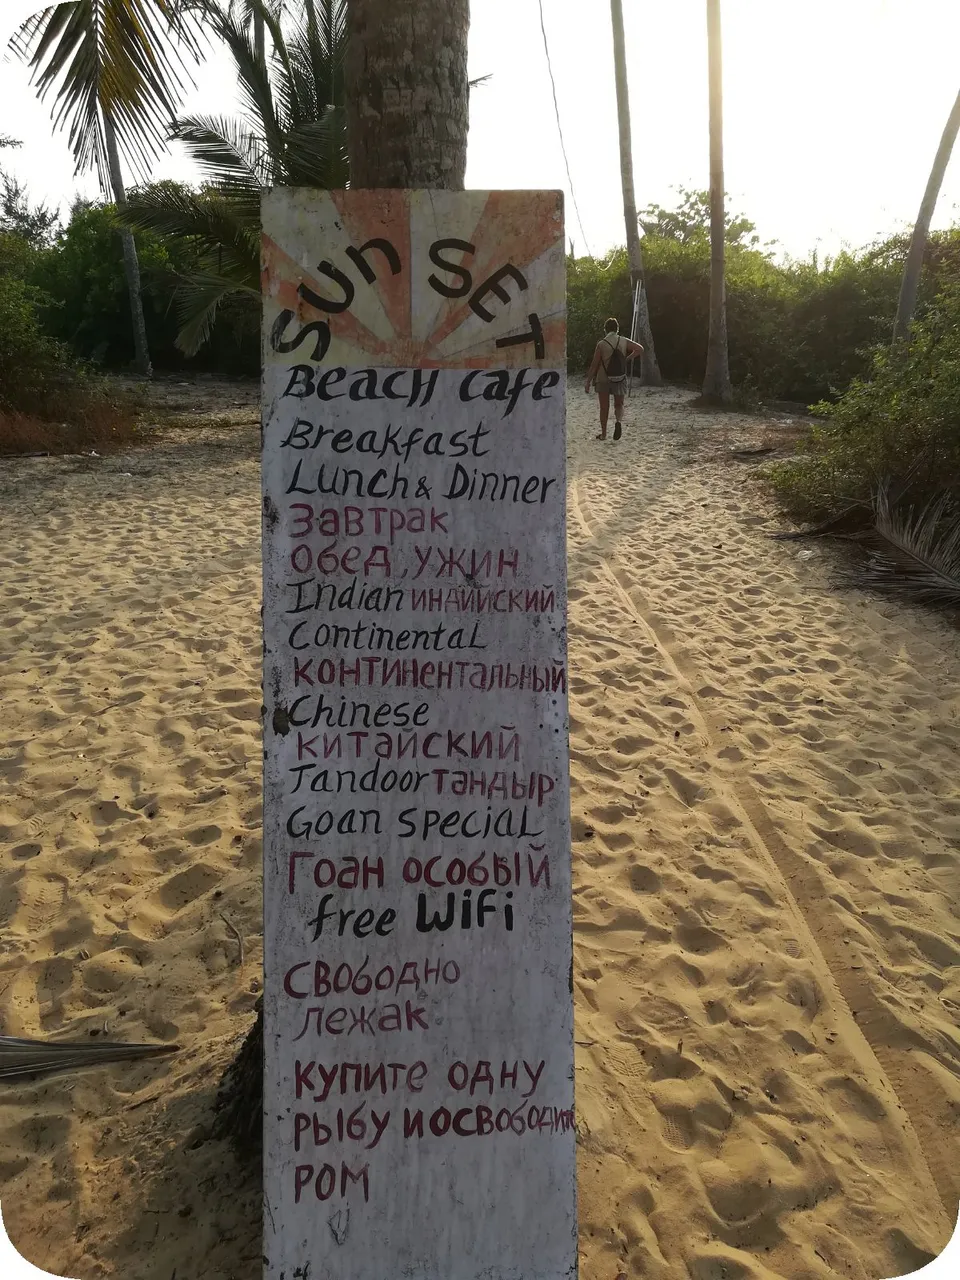 SUn SET
BeacH cafe
Breakfast
Lunch & Dinner
Завтрак
обед, ужин
Indian индийский
Continental
континентальный
Chinese
китайский
Tandoor тандыр
Goan special
Гоан особый
free WiFi
свободно
лежак
купите одну
рыбу и освободите
ром